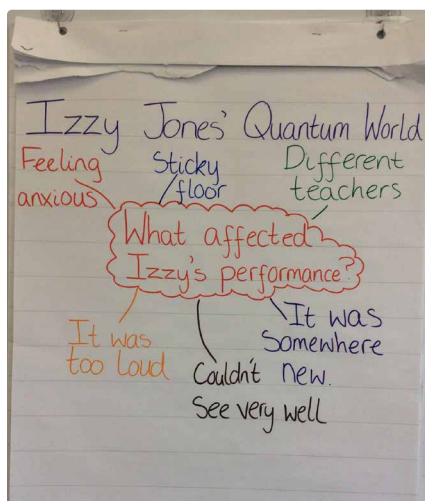 Izzy Jones' Quantum World
Feeling
anxious
Sticky
floor
Different
teachers
What affected
Izzy's performance?
It was
too loud
Couldn't
see very well
It was
somewhere
new.